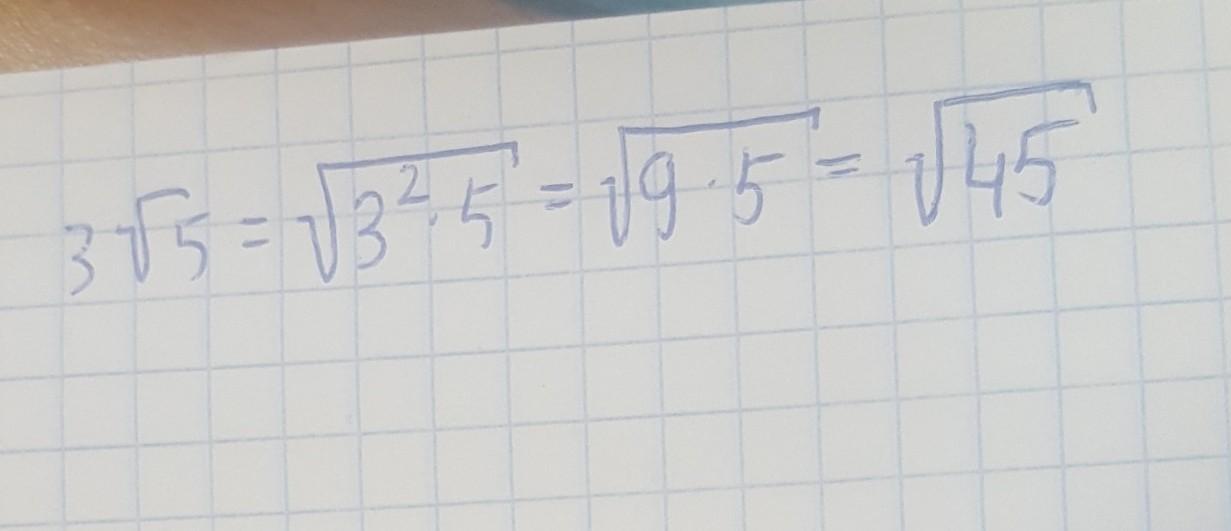 3√5 = √3²·5 = √9·5 = √45